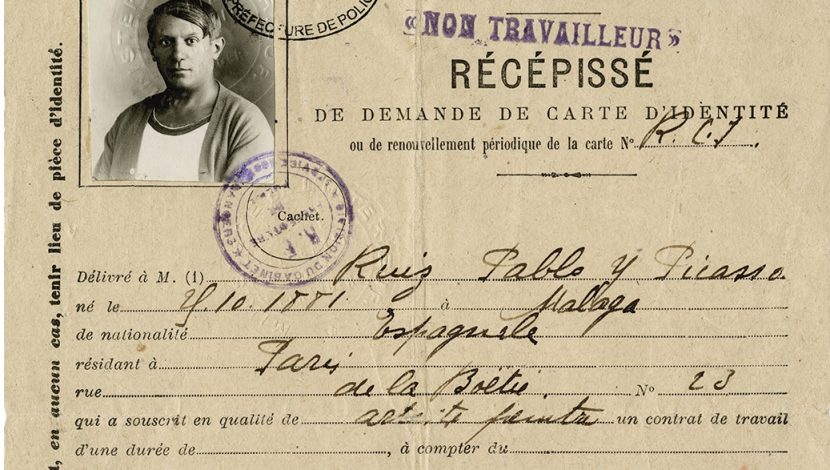 PRÉFECTURE DE POLICE
« NON TRAVAILLEUR »
RÉCÉPISSÉ
DE DEMANDE DE CARTE D'IDENTITÉ
ou de renouvellement périodique de la carte N° R.C.I
Cachet.
Délivré à M. (1) Ruiz Pablo y Picasso
né le 25.10.1881. à Malaga
de nationalité Espagnole
résidant à Paris
rue de la Boëtie. N° 23
qui a souscrit en qualité de artiste peintre un contrat de travail
d'une durée de , à compter du
, en aucun cas, tenir lieu de pièce d'identité.